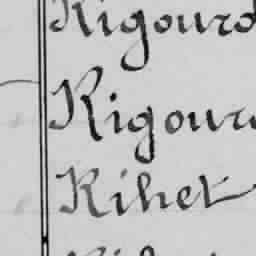 Rigourd
Rigour
Rihet